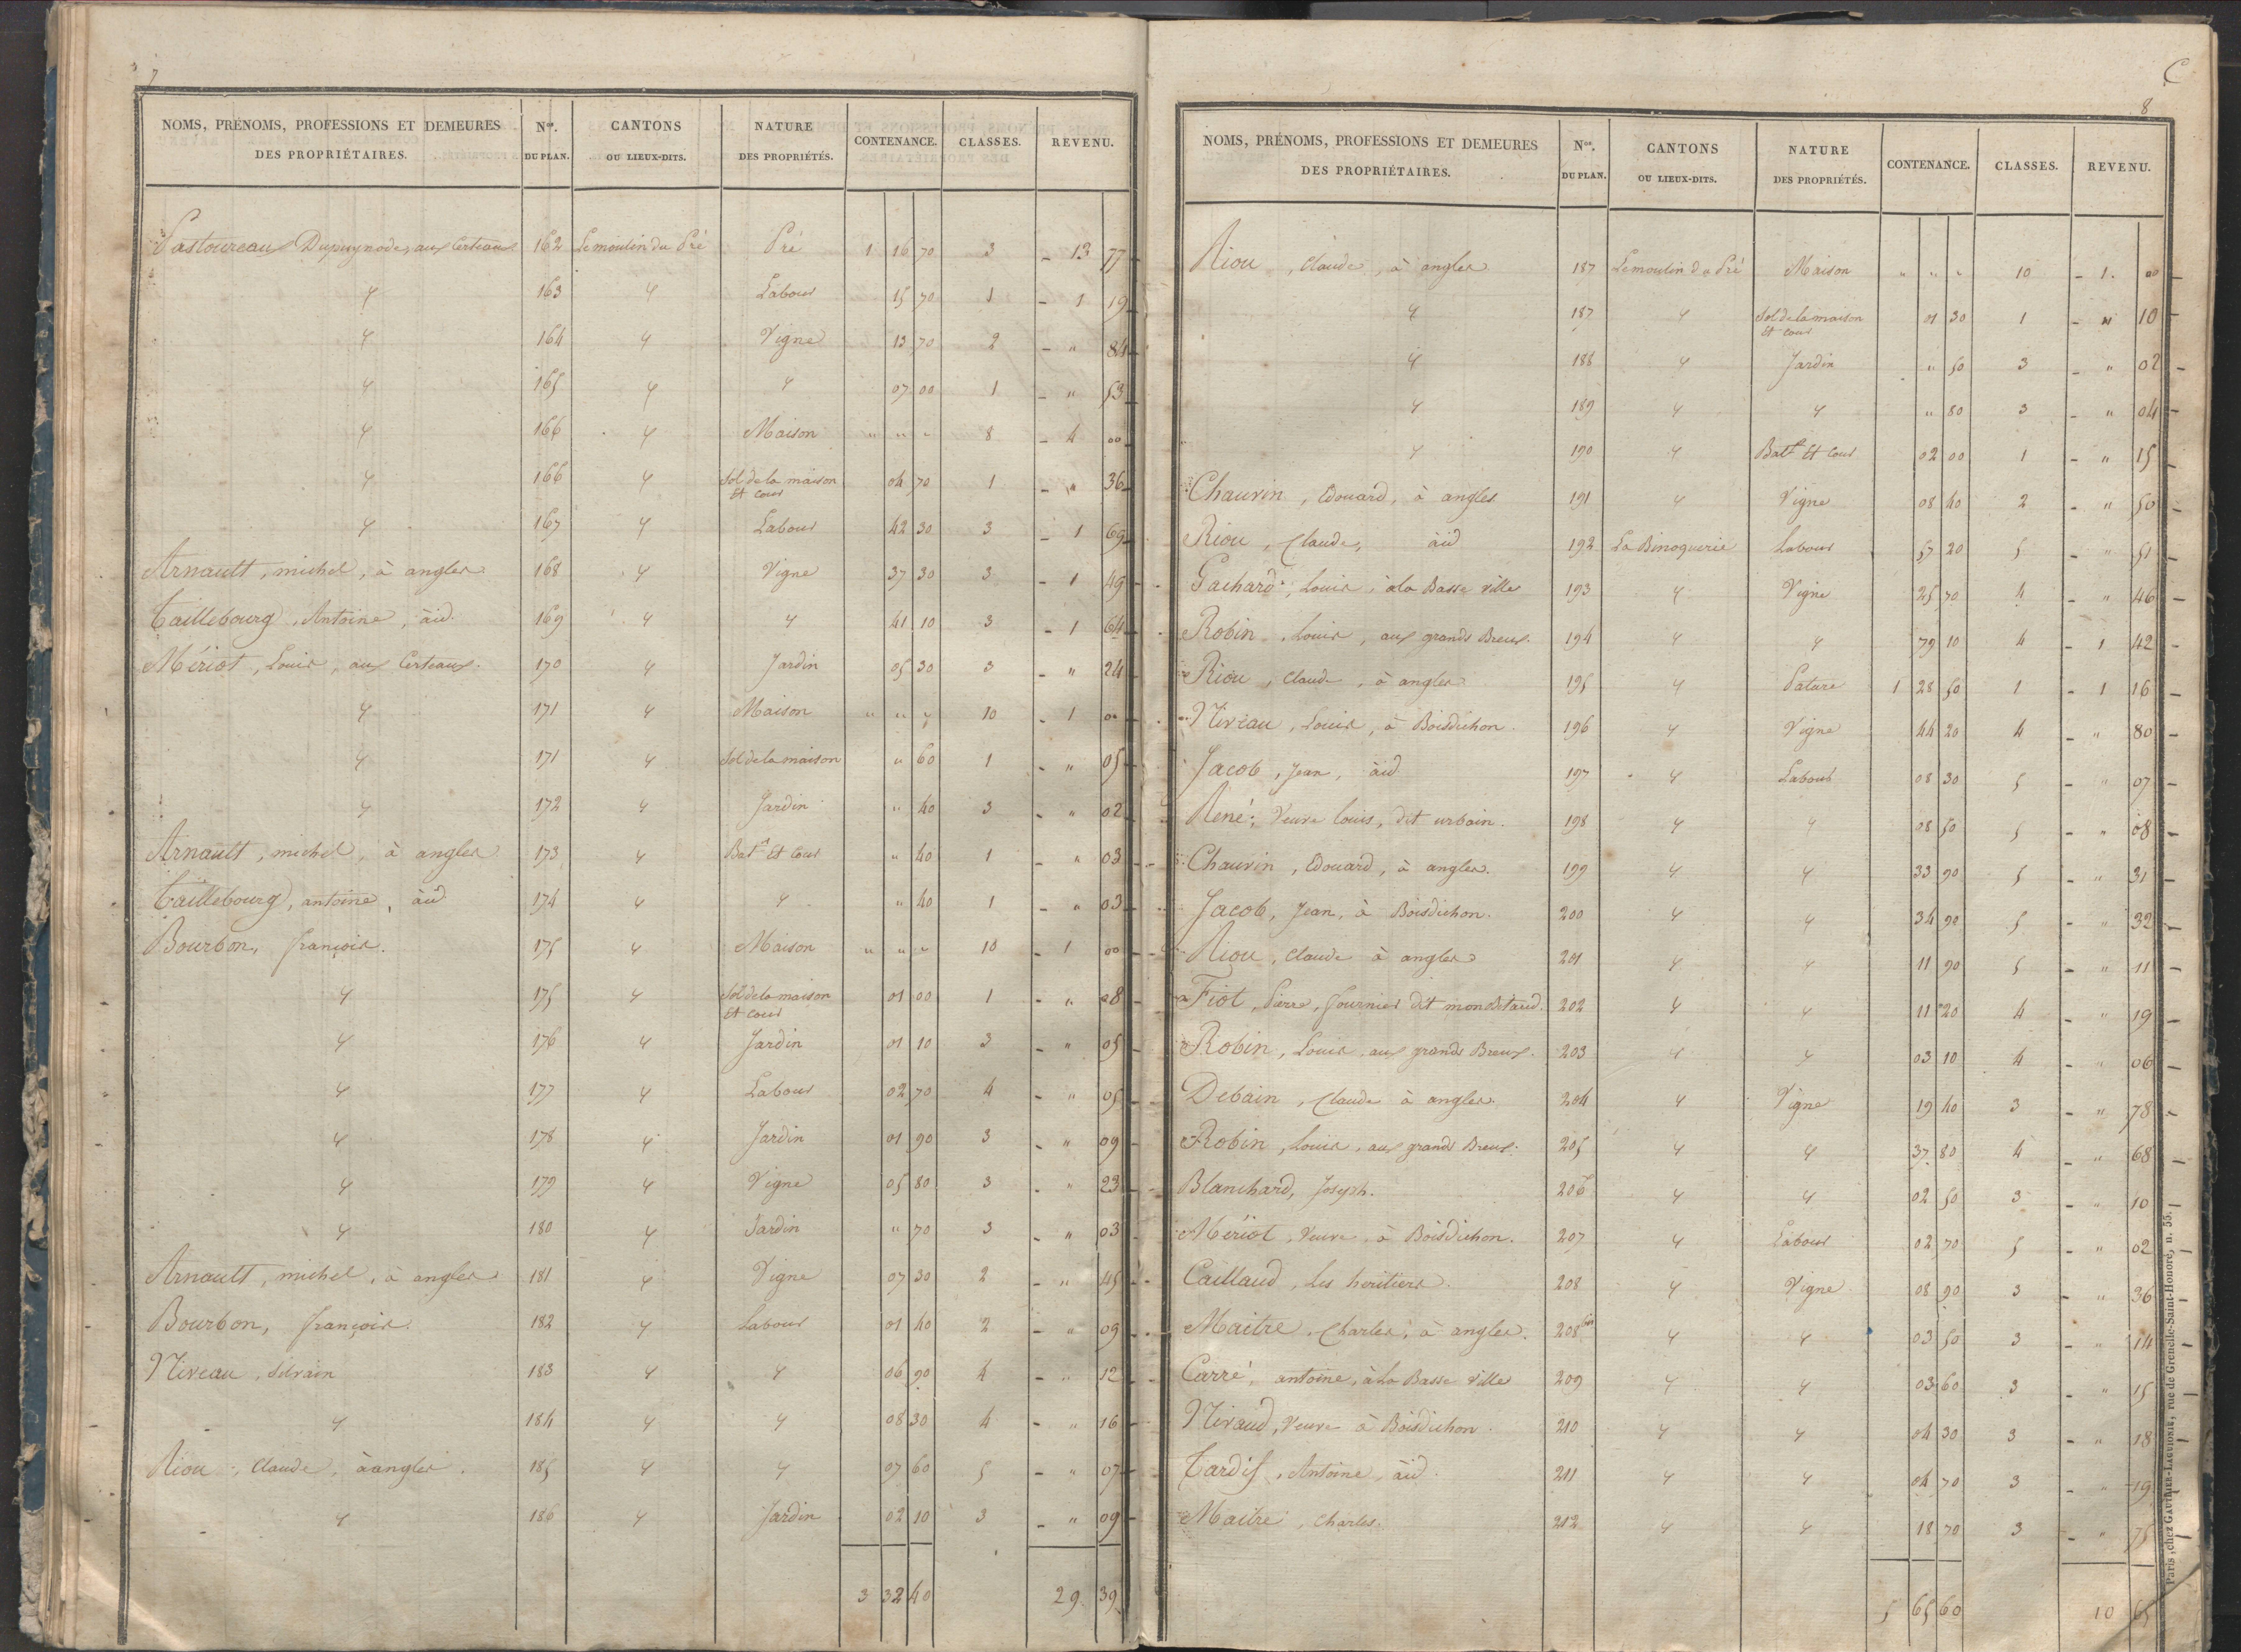 7
NOMS, PRÉNOMS, PROFESSIONS ET DEMEURES DES PROPRIÉTAIRES. Nos. DU PLAN. CANTONS OU LIEUX-DITS. NATURE DES PROPRIÉTÉS. CONTENANCE. CLASSES. REVENU.
Pastoureau Dupuynode, aux Certeaux 162 Le moulin du Pré Pré 1 16 70 3 - 13 77
〃 163 〃 Labour 15 70 1 - 1 19
〃 164 〃 Vigne 13 70 2 - " 84
〃 165 〃 〃 07 00 1 - " 53
〃 166 〃 Maison " " " 8 - 4 00
〃 166 〃 Sol de la maison Et cour 04 70 1 - " 36
〃 167 〃 Labour 42 30 3 - 1 69
Arnault, michel, à angles 168 〃 Vigne 37 30 3 - 1 49
Taillebourg, Antoine, àid. 169 〃 〃 41 10 3 - 1 64
Mériot, Louis, aux Certeaux. 170 〃 Jardin 05 30 3 - " 24
〃 171 〃 Maison " " " 10 - 1 00
〃 171 〃 Sol de la maison " 60 1 - " 05
〃 172 〃 Jardin " 40 3 - " 02
Arnault, michel, à angles 173 〃 Bat.t Et Cour " 40 1 - " 03
Taillebourg, antoine, àid 174 〃 〃 " 40 1 - " 03
Bourbon, françois. 175 〃 Maison " " " 10 - 1 00
〃 175 〃 Sol de la maison Et cour 01 00 1 - " 08
〃 176 〃 Jardin 01 10 3 - " 05
〃 177 〃 Labour 02 70 4 - " 05
〃 178 〃 Jardin 01 90 3 - " 09
〃 179 〃 Vigne 05 80 3 - " 23
〃 180 〃 Jardin " 70 3 - " 03
Arnault, michel, à angles 181 〃 Vigne 07 30 2 - " 45
Bourbon, françois. 182 〃 Labour 01 40 2 - " 09
Niveau, Silvain 183 〃 〃 06 90 4 - " 12
〃 184 〃 〃 08 30 4 - " 16
Riou, Claude, à angles. 185 〃 〃 07 60 5 - " 07
〃 186 〃 Jardin 02 10 3 - " 09
3 32 40 29 39
C
8
NOMS, PRÉNOMS, PROFESSIONS ET DEMEURES DES PROPRIÉTAIRES. Nos. DU PLAN. CANTONS OU LIEUX-DITS. NATURE DES PROPRIÉTÉS. CONTENANCE. CLASSES. REVENU.
Riou, Claude, à angles 187 Le moulin du Pré Maison " " " 10 - 1. 00
〃 187 〃 Sol de la maison Et cour 01 30 1 - " 10
〃 188 〃 Jardin " 50 3 - " 02
〃 189 〃 〃 " 80 3 - " 04
〃 190 〃 Bat.t Et Cour 02 00 1 - " 15
Chauvin, Edouard, à angles 191 〃 Vigne 08 40 2 - " 50
Riou, Claude, àid 192 La Binoguerie Labour 57 20 5 - " 51
Gachard, Louis, à la Basse ville 193 〃 Vigne 25 70 4 - " 46
Robin, Louis, aux grands Breux. 194 〃 〃 79 10 4 - 1 42
Riou, Claude, à angles 195 〃 Pature 1 28 50 1 - 1 16
Niveau, Louis, à Boisdichon. 196 〃 Vigne 44 20 4 - " 80
Jacob, Jean, àid. 197 〃 Labour 08 30 5 - " 07
René, Veuve louis, dit urbain. 198 〃 〃 08 50 5 - " 08
Chauvin, Edouard, à angles. 199 〃 〃 33 90 5 - " 31
Jacob, Jean, à Boisdichon. 200 〃 〃 34 90 5 - " 32
Riou, Claude à angles 201 〃 〃 11 90 5 - " 11
Fiot, Pierre, fournier dit 202 〃 〃 11 20 4 - " 19
Robin, Louis, aux grands Breux. 203 〃 〃 03 10 4 - " 06
Debain, Claude à angles. 204 〃 Vigne 19 40 3 - " 78
Robin, Louis, aux grands Breux. 205 〃 〃 37 80 4 - " 68
Blanchard, Joseph. 206 〃 〃 02 50 3 - " 10
Mériot, Veuve, à Boisdichon. 207 〃 Labour 02 70 5 - " 02
Caillaud, les heritiers. 208 〃 Vigne 08 90 3 - " 36
Maitre, Charles, à angles. 208 bis 〃 〃 03 50 3 - " 14
Carré, antoine, à la Basse ville 209 〃 〃 03 60 3 - " 15
Niraud, Veuve à Boisdichon. 210 〃 〃 04 30 3 - " 18
Tardif, Antoine, àid. 211 〃 〃 04 70 3 - " 19
Maitre, Charles. 212 〃 〃 18 70 3 - " 75
5 65 60 10 65
Paris, chez GAUTHIER-LAGUIONIE, rue de Grenelle-Saint-Honoré, n. 55.